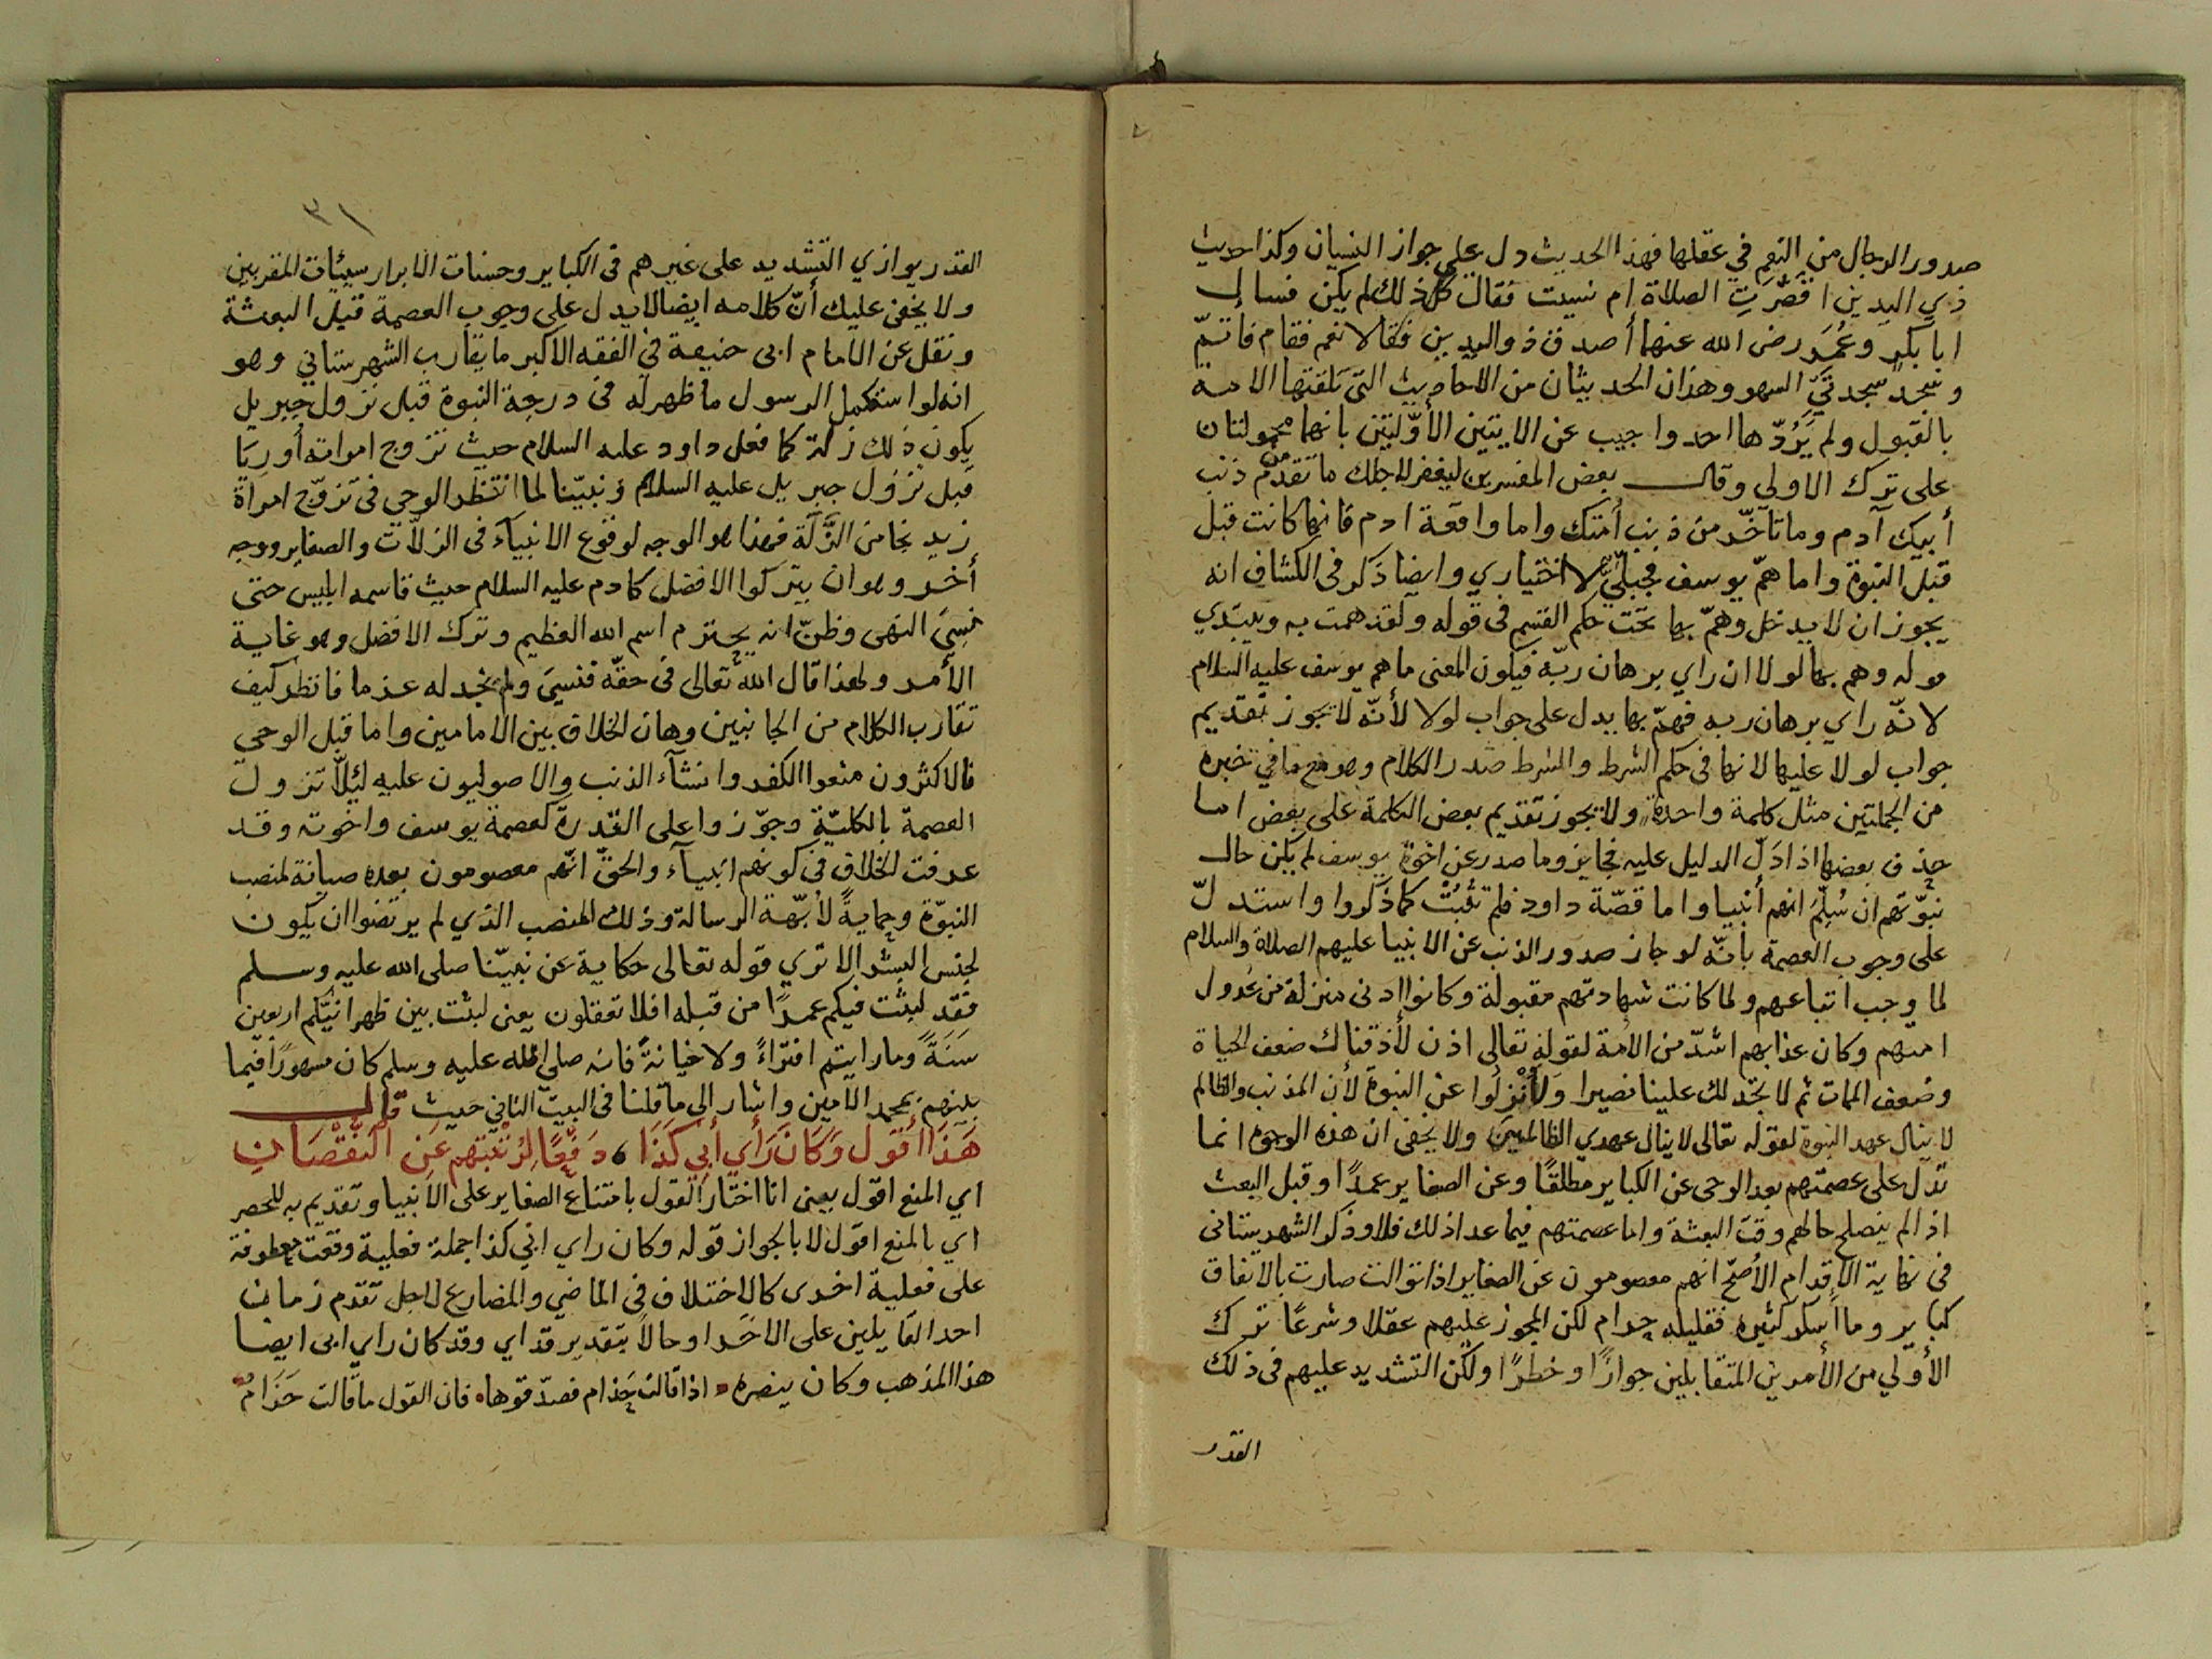 صدور الرجال من النعم في عقلها فهذا الحديث دل على جواز النسيان وكذا حديث
ذي اليدين اقصرت الصلاة ام نسيت فقال كل ذلك لم يكن فسال
ابا بكر وعُمَر رضى الله عنهما أصدق ذو اليدين فقالا نعم فقام فاتمّ
وسجد سجدتَيّ السهو وهذان الحديثان من الاحاديث التى تلقتها الامة
بالقبول ولم يَرُدّها احد واجيب عن الايتين الأوّليَين بانهما محمولتان
على ترك الاولى وقال بعض المفسرين ليغفر لاجلك ما تقدّم من ذنب
أبيك آدم وما تأخّر من ذنب أمتك واما واقعة ادم فانها كانت قبل
قبل النبوة واما همّ يوسف فجبلّي لا اختياري وايضا ذكر فى الكشاف انه
يجوز ان لا يدخل وهمّ بها تحت حكم القسم فى قوله ولقد همت به ويبتدي
قوله وهم بها لولا ان راي برهان ربّه فيكون المعنى ما هم يوسف عليه السلام
لانّه راي برهان ربه فهمّ بها يدل على جواب لولا لأنّه لا يجوز تقديم
جواب لولا عليها لانها فى حكم الشرط والشرط صدر الكلام وهو مع ما في خبره
من الجملتين مثل كلمة واحدة ولا يجوز تقديم بعض الكلمة على بعض اما
حذف بعضها اذا دَلّ الدليل عليه فجايز وما صدر عن اخوة يوسف لم يكن حال
نبوّتهم ان سُلِّمَ انهم أنبيا واما قصّة داود فلم تثبُتْ كما ذكروا واستدلّ
على وجوب العصمة بانّه لو جاز صدور الذنب عن الانبيا عليهم الصلاة والسلام
لما وجب اتباعهم ولما كانت شهادتهم مقبولة وكانوا ادنى منزلة من عُدول
امتهم وكان عذابهم اشدّ من الامّة لقوله تعالى اذن لأذقناك ضعف الحياة
وضعف الممات ثم لا تجد لك علينا نصيرا ولأنْزِلُوا عن النبوة لأن المذنب والظالم
لا ينال عهد النبوة لقوله تعالى لا ينال عهدي الظالمين ولا يخفى ان هذه الوجوه انما
تدل على عصمتهم بعد الوحى عن الكباير مطلقًا وعن الصغاير عمدًا وقبل البعث
اذا لم ينصلح حالهم وقت البعثة واما عصمتهم فيما عدا ذلك فلا وذكر الشهرستانى
فى نهاية الاقدام الأصحّ انهم معصومون عن الصغاير اذا توالت صارت بالاتفاق
كباير وما أسكر كثيره فقليله حرام لكن المجوز عليهم عقلا وشرعًا ترك
الأوّلي من الأمرين المتقابلين جوازًا وخطرًا ولكن التشديد عليهم فى ذلك
القدر
٣١
القدر يوازي التشديد على غيرهم فى الكباير وحسنات الابرار سيئات المقربين
ولا يخفى عليك أنّ كلامه ايضا لا يدل على وجوب العصمة قبل البعثة
ونقل عن الامام ابى حنيفة في الفقه الاكبر ما يقارب الشهرستاني وهو
انه لو استكمل الرسول ما ظهر له فى درجة النبوة قبل نزول جبريل
يكون ذلك زلة كما فعل داود عليه السلام حيث تزوج امراته أوريَا
قبل نزول جبريل عليه السلام ونبيّنا لما انتظر الوحى فى تزوّج امراة
زيد نجا من الزَّلَّة فهذا هو الوجه لوقوع الانبيآء فى الزلاّت والصغاير ووجه
أخر وهو ان يتركوا الافضل كادم عليه السلام حيث قاسمه ابليس حتى
نَسِيَ النهى وظنّ انه يحترم اسم الله العظيم وترك الافضل وهو غاية
الأمر ولهذا قال الله تعالى فى حقّه فنسيَ ولم نجد له عزما فانظر كيف
تقارب الكلام من الجانبين وهان الخلاف بين الامامين واما قبل الوحى
فالاكثرون منعوا الكفر وانشآء الذنب والاصوليون عليه لئلاّ تزول
العصمة بالكليّة وجوّزوا على القدرة كعصمة يوسف واخوته وقد
عرفت الخلاف فى كونهم انبيآء والحقّ انّهم معصومون بعده صيانة لمنصب
النبوّة وحمايةً لأبّهة الرسالة وذلك المنصب الذي لم يرتضوا ان يكون
لجنس البشر الا تري قوله تعالى حكاية عن نبيّنا صلى الله عليه وسلم
فقد لبثت فيكم عمرًا من قبله افلا تعقلون يعنى لبثت بين ظهرانيّكم اربعين
سَنَةً وما رايتم افتراءً ولا خيانةً فانه صلى الله عليه وسلم كان مشهورًا فيما
بينهم بمحمد الامين واشار الى ما قلنا فى البيت الثاني حيث قال
هَذَا أَقُول وَكَانَ رَأْي أَبِي كَذَا ، دَفْعًا لِرُتْبَتِهِم عَنِ النُّقْصَانِ
اي المنع اقول يعنى انا اختار القول بامتناع الصغاير على الانبيا وتقديم به للحصر
اي بالمنع اقول لا بالجواز قوله وكان راي ابى كذا جملة فعلية وقعت معطوفة
على فعلية اخرى كالاختلاف فى الماضي والمضارع لاجل تقدّم زمان
احد القايلين على الاخَر او حالاً بتقدير قد اي وقد كان راي ابى ايضا
هذا المذهب وكان ينصره اذا قالت حَذام فصدّقوها فان القول ما قالت حَذَامُ